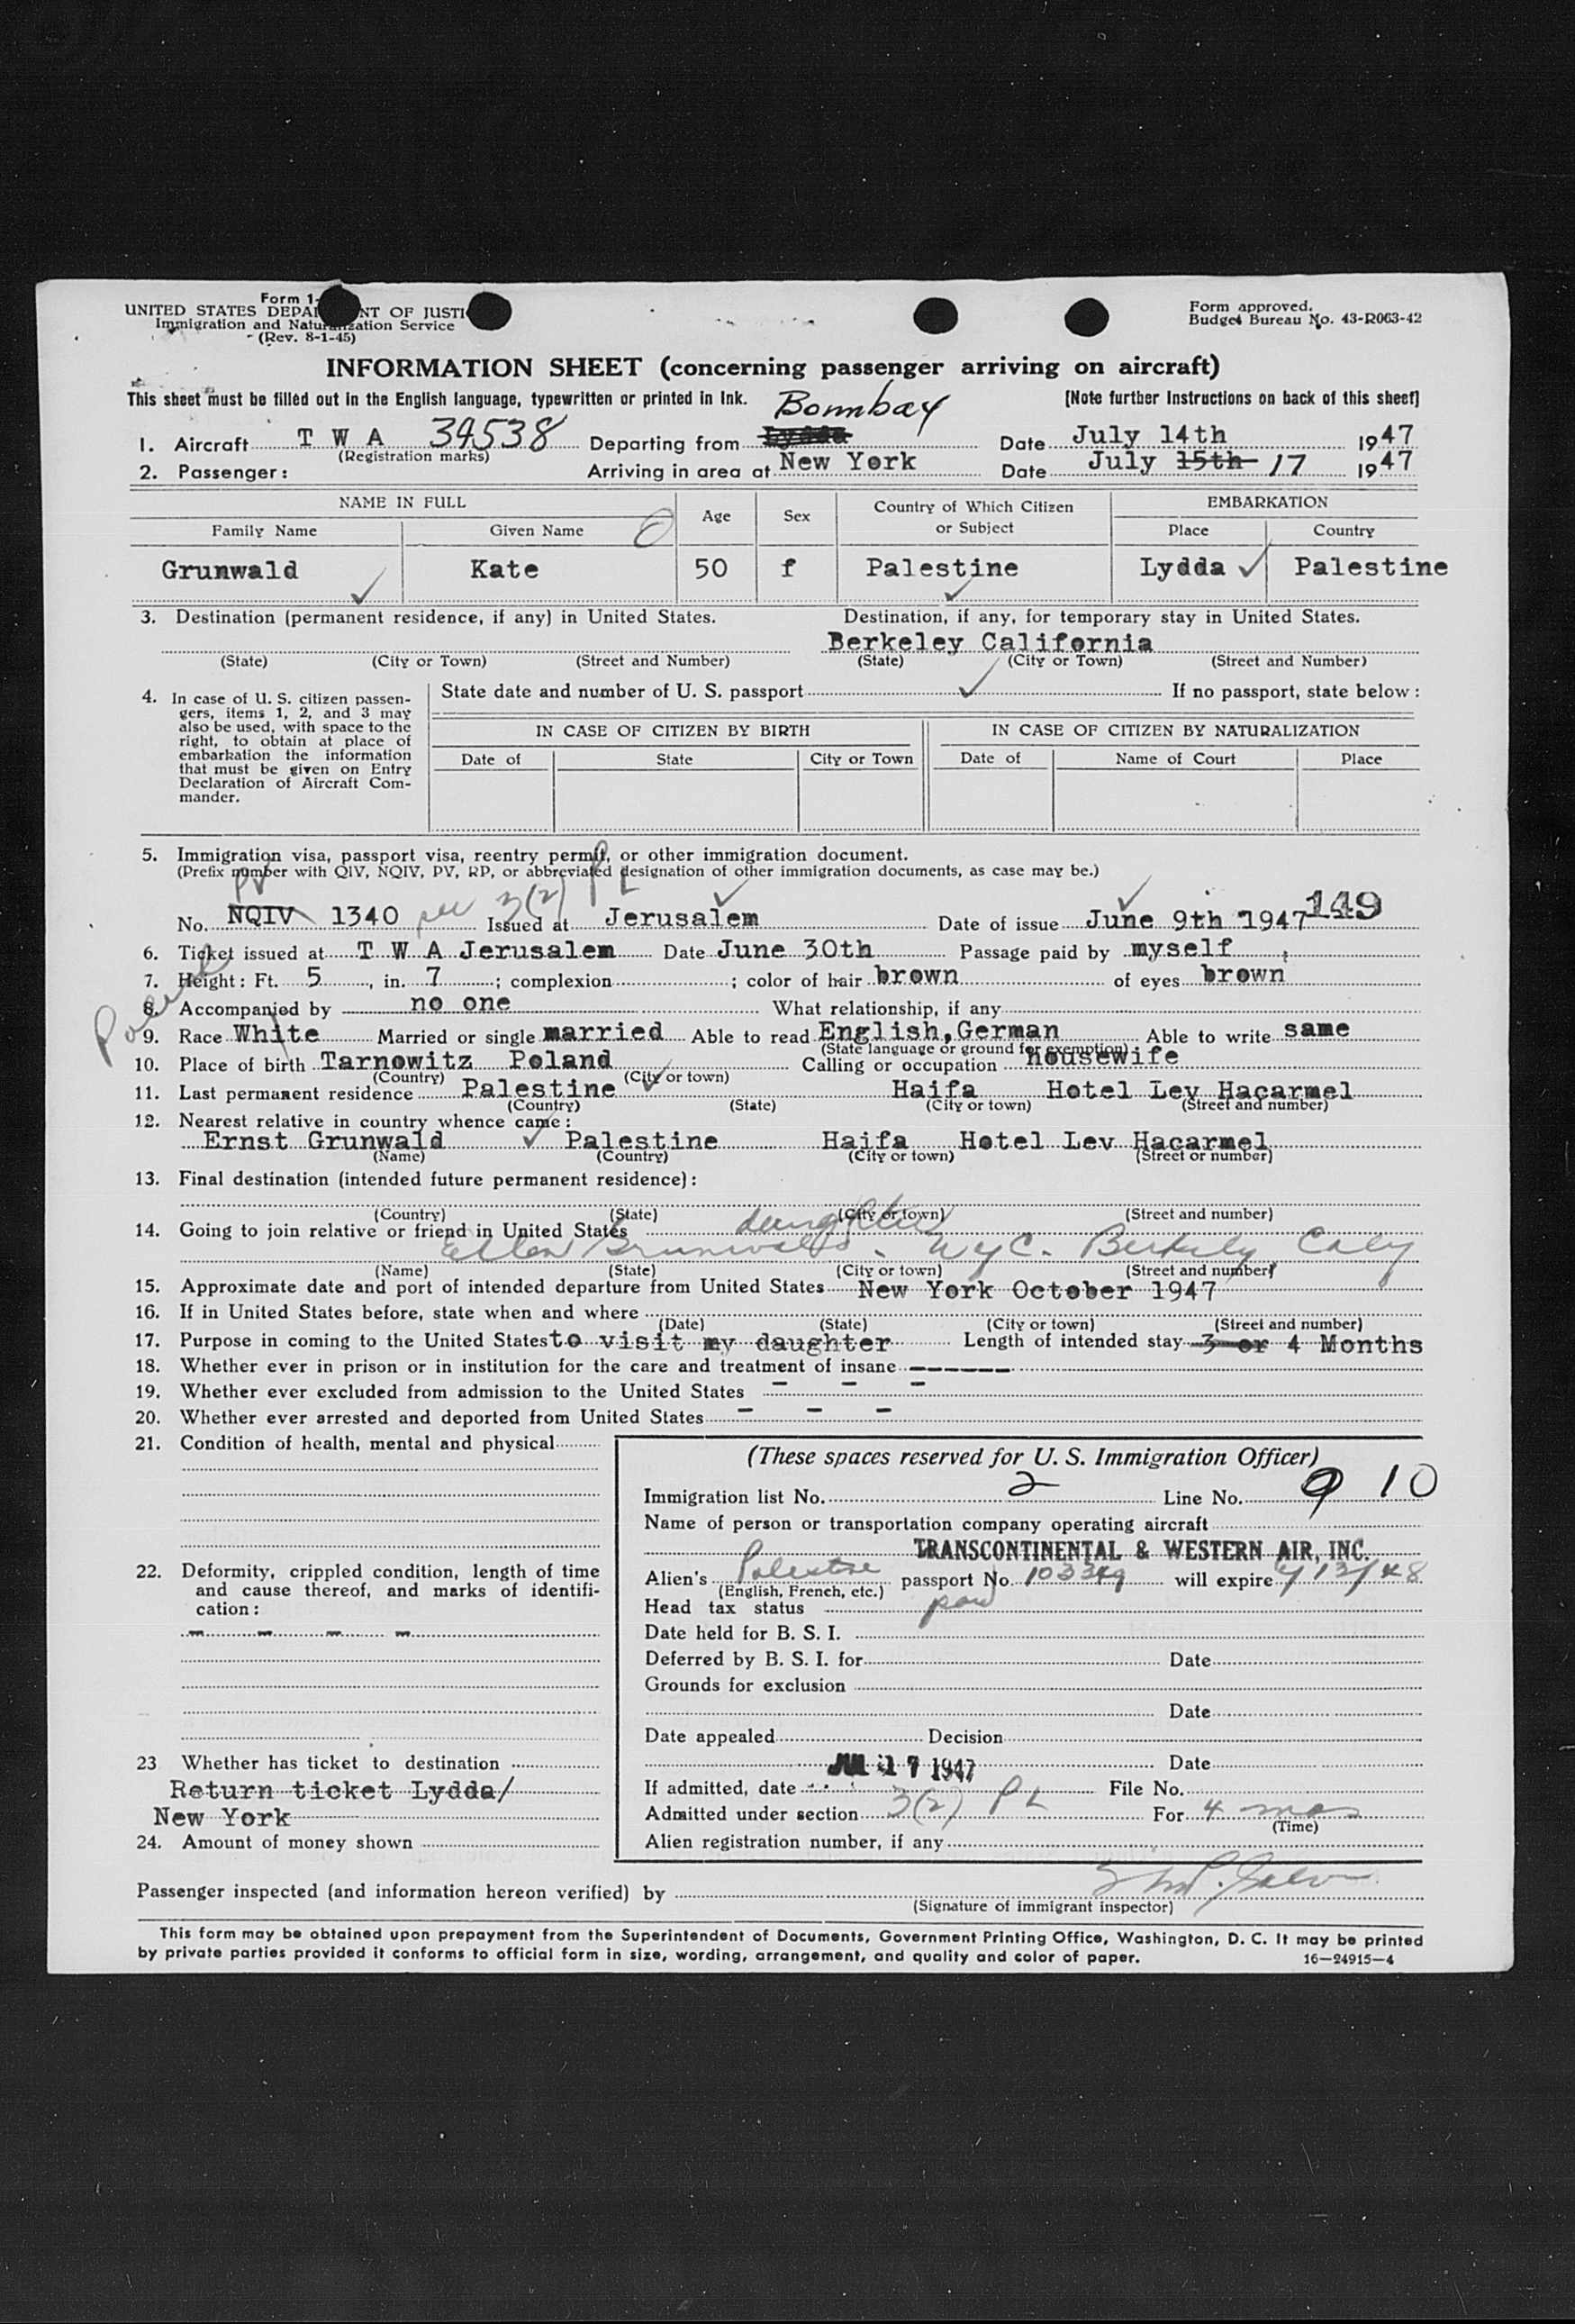 Form 1-
UNITED STATES DEPA NT OF JUSTI
Immigration and Naturalization Service
(Rev. 8-1-45)
Form approved.
Budget Bureau No. 43-R063-42
INFORMATION SHEET (concerning passenger arriving on aircraft)
This sheet must be filled out in the English language, typewritten or printed in Ink. [Note further Instructions on back of this sheet]
Bombay
1. Aircraft T W A 39538 Departing from Lydda Date July 14th 1947
(Registration marks)
2. Passenger: Arriving in area at New York Date July 15th 17 1947
NAME IN FULL Age Sex Country of Which Citizen or Subject EMBARKATION
Family Name Given Name Place Country
Grunwald Kate 50 f Palestine Lydda Palestine
3. Destination (permanent residence, if any) in United States. Destination, if any, for temporary stay in United States.
Berkeley California
(State) (City or Town) (Street and Number) (State) (City or Town) (Street and Number)
4. In case of U. S. citizen passengers, items 1, 2, and 3 may also be used, with space to the right, to obtain at place of embarkation the information that must be given on Entry Declaration of Aircraft Commander.
State date and number of U. S. passport If no passport, state below:
IN CASE OF CITIZEN BY BIRTH IN CASE OF CITIZEN BY NATURALIZATION
Date of State City or Town Date of Name of Court Place
5. Immigration visa, passport visa, reentry permit, or other immigration document.
(Prefix number with QIV, NQIV, PV, RP, or abbreviated designation of other immigration documents, as case may be.)
PV 3(2) PL
No. NQIV 1340 Issued at Jerusalem Date of issue June 9th 1947 149
6. Ticket issued at T W A Jerusalem Date June 30th Passage paid by myself
7. Height: Ft. 5, in. 7; complexion ; color of hair brown of eyes brown
8. Accompanied by no one What relationship, if any
9. Race White Married or single married Able to read English, German Able to write same
(State language or ground for exemption)
10. Place of birth Tarnowitz Poland Calling or occupation housewife
(Country) (City or town)
11. Last permanent residence Palestine Haifa Hotel Lev Hacarmel
(Country) (State) (City or town) (Street and number)
12. Nearest relative in country whence came:
Ernst Grunwald Palestine Haifa Hotel Lev Hacarmel
(Name) (Country) (City or town) (Street or number)
13. Final destination (intended future permanent residence):
(Country) (State) (City or town) (Street and number)
14. Going to join relative or friend in United States daughter
Ellen Grunwald. NYC. Berkely Caly
(Name) (State) (City or town) (Street and number)
15. Approximate date and port of intended departure from United States New York October 1947
16. If in United States before, state when and where
(Date) (State) (City or town) (Street and number)
17. Purpose in coming to the United States to visit my daughter Length of intended stay 3 or 4 Months
18. Whether ever in prison or in institution for the care and treatment of insane ------
19. Whether ever excluded from admission to the United States - - -
20. Whether ever arrested and deported from United States - - -
21. Condition of health, mental and physical
22. Deformity, crippled condition, length of time and cause thereof, and marks of identification:
- - - -
23 Whether has ticket to destination
Return ticket Lydda/
New York
24. Amount of money shown
(These spaces reserved for U. S. Immigration Officer)
Immigration list No. 2 Line No. 9 10
Name of person or transportation company operating aircraft
TRANSCONTINENTAL & WESTERN AIR, INC.
Alien's Palestine passport No. 103349 will expire 4/13/48
(English, French, etc.)
Head tax status paid
Date held for B. S. I.
Deferred by B. S. I. for Date
Grounds for exclusion
Date
Date appealed Decision
JUL 17 1947 Date
If admitted, date File No.
Admitted under section 3(2) PL For 4 mos
(Time)
Alien registration number, if any
Passenger inspected (and information hereon verified) by
(Signature of immigrant inspector)
This form may be obtained upon prepayment from the Superintendent of Documents, Government Printing Office, Washington, D. C. It may be printed
by private parties provided it conforms to official form in size, wording, arrangement, and quality and color of paper. 16—24915—4